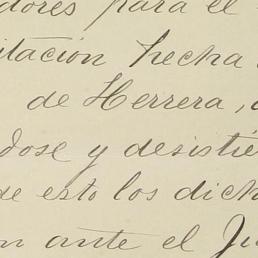 dores para el
itación hecha
de Herrera,
dose y desistié
de esto los dich
n ante el Ju